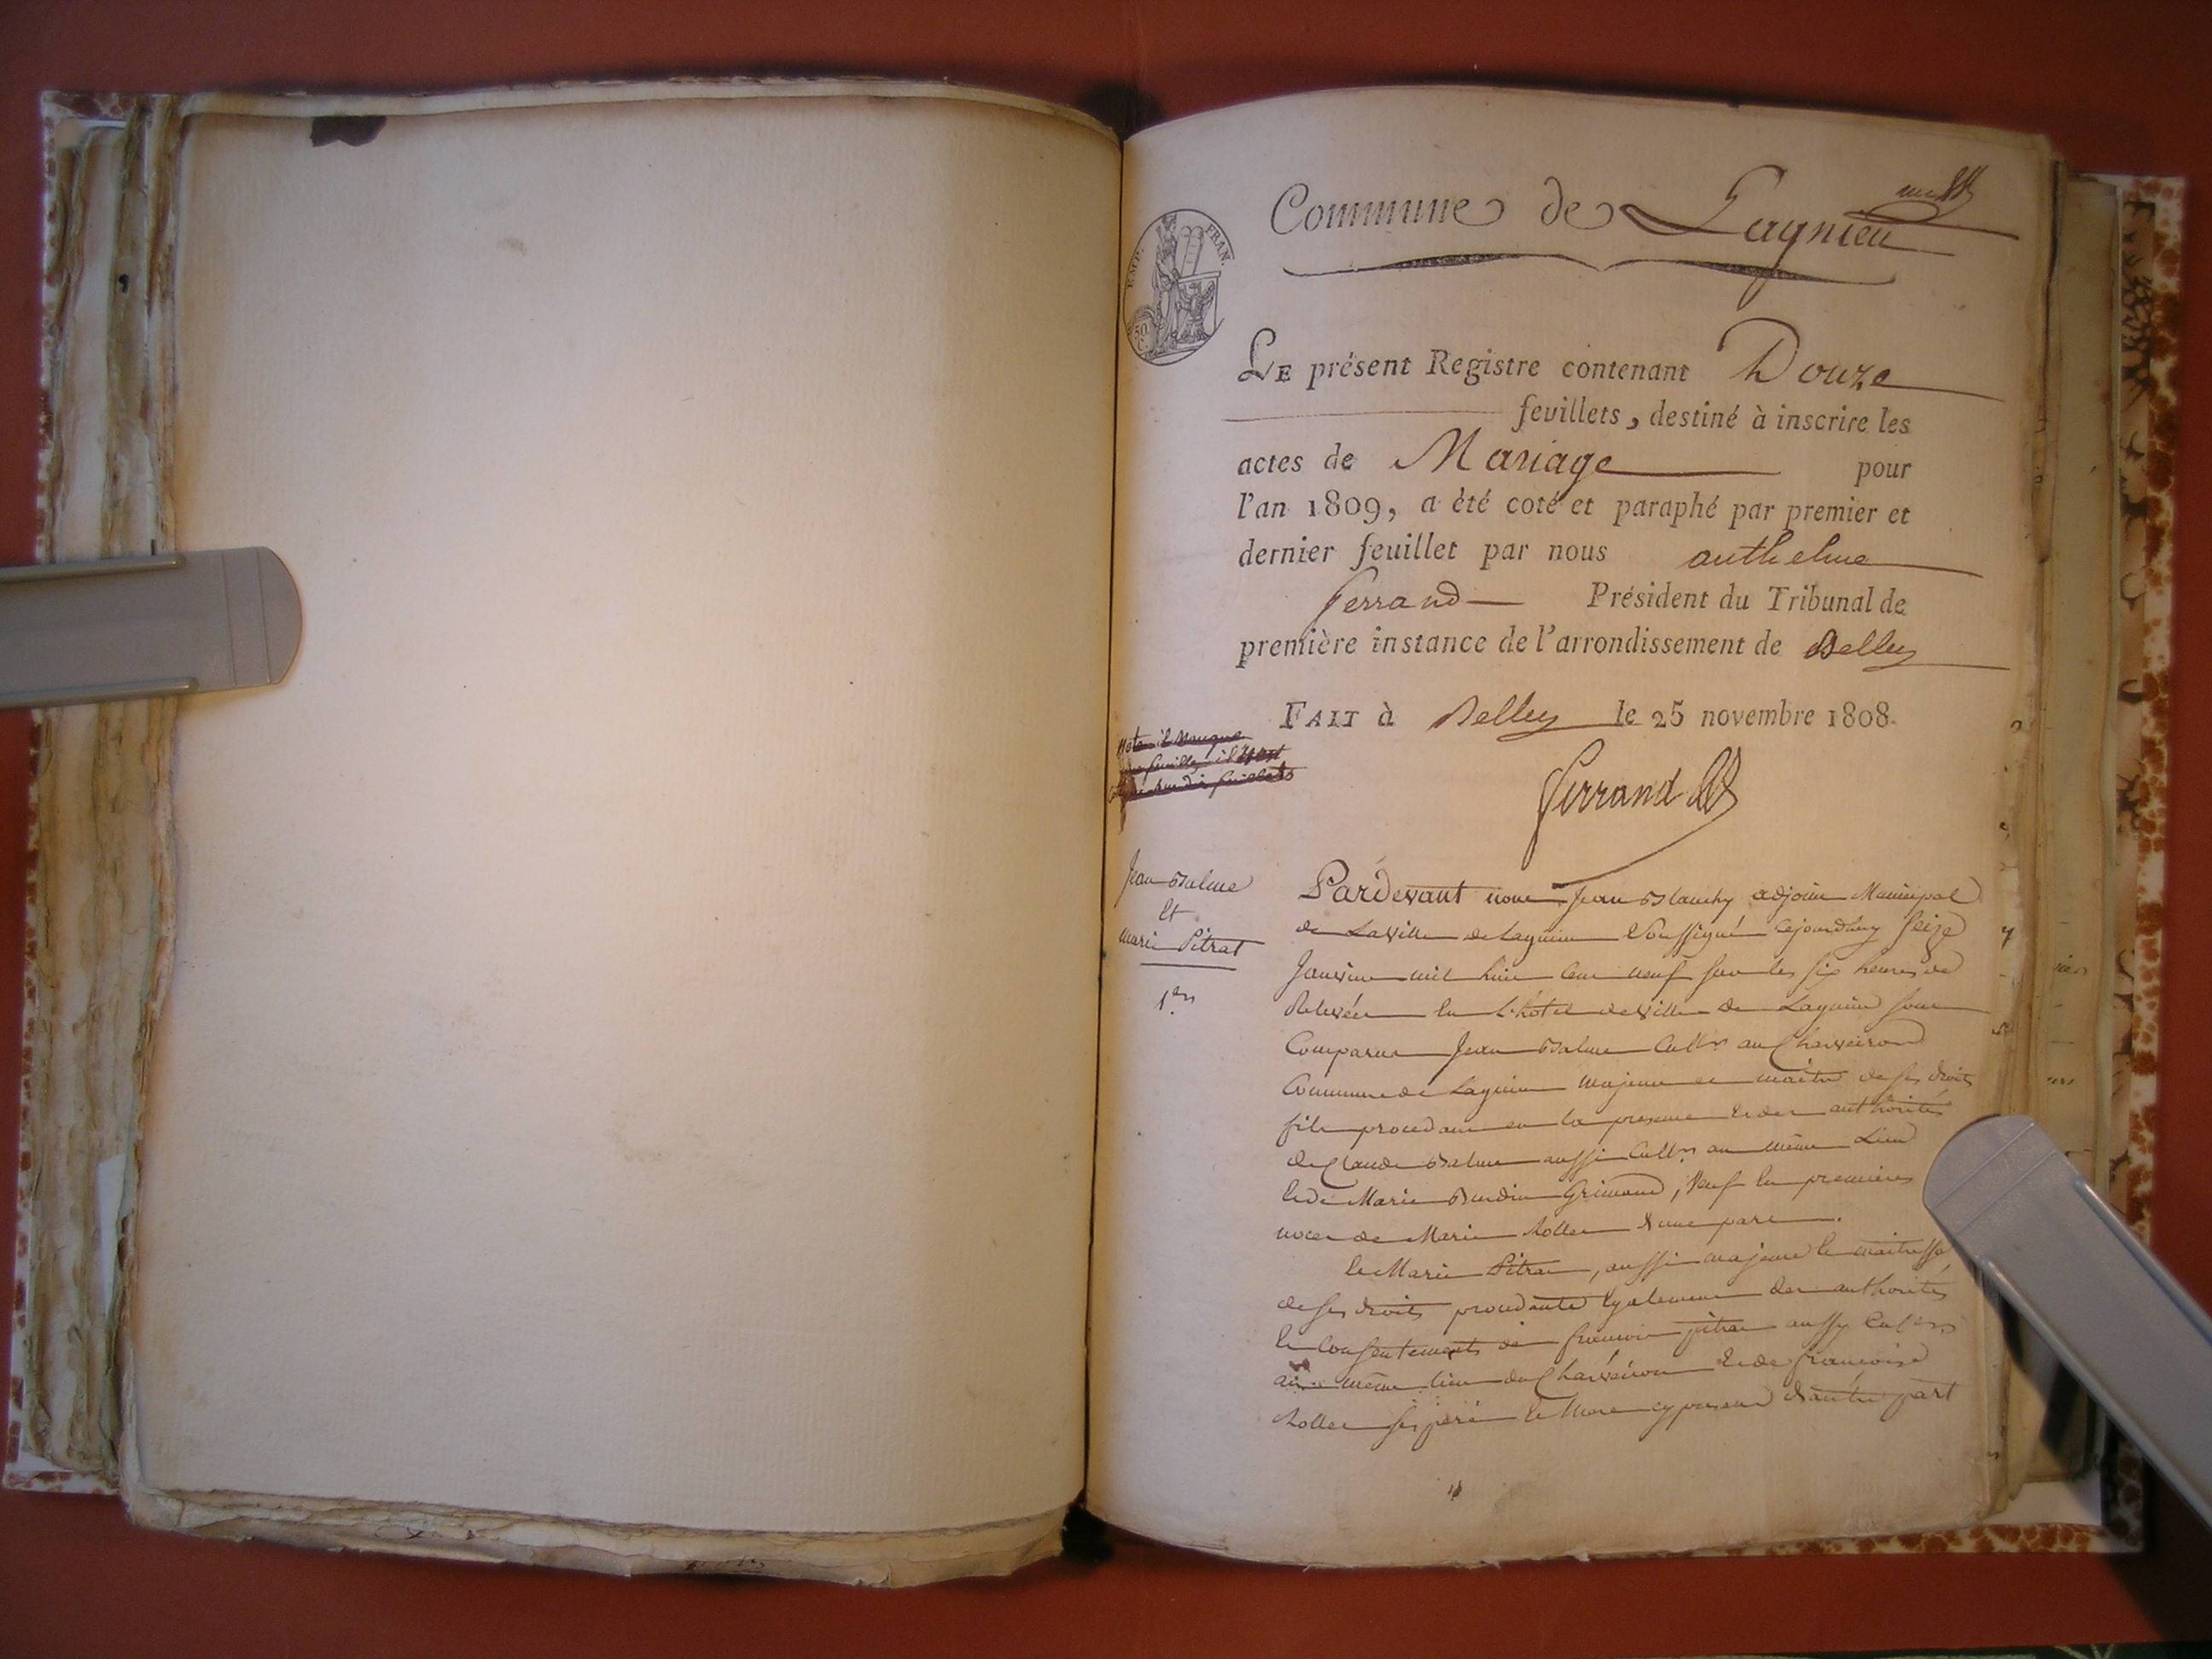 Commune de Lagnieu
EMP. FRAN.
50 C.
LE présent Registre contenant Douze
feuillets, destiné à inscrire les
actes de Mariage pour
l'an 1809, a été coté et paraphé par premier et
dernier feuillet par nous anthelme
ferrand Président du Tribunal de
première instance de l'arrondissement de Belley
FAIT à Belley le 25 novembre 1808.
ferrand
Jean Balme
Et
marie Pitrat
1er
Pardevant nous Jean Blanchy adjoint Municipal
de La Ville de Lagnieu Soussigné cejourdhuy seize
Janvier mil huit cent neuf sur les six heures de
Relevée en L'hôtel de Ville de Lagnieu sont
Comparus Jean Balme Cultr. au Charveiron
Commune de Lagnieu majeur et maitre de ses droits
fils procedant en la presence et des authorités
de Claude Balme aussi Cultr. au même Lieu
et de Marie Burdin Grimaud, Veuf en premieres
noces de Marie Rollet d'une part.
et Marie Pitrat, aussi majeure et maitresse
de ses droits procedante Egalement des authorités
et Consentements de francois pitrat aussy Cultr.
au même lieu du Charveiron et de francoise
Rollet ses pere et Mere cy presents d'autre part